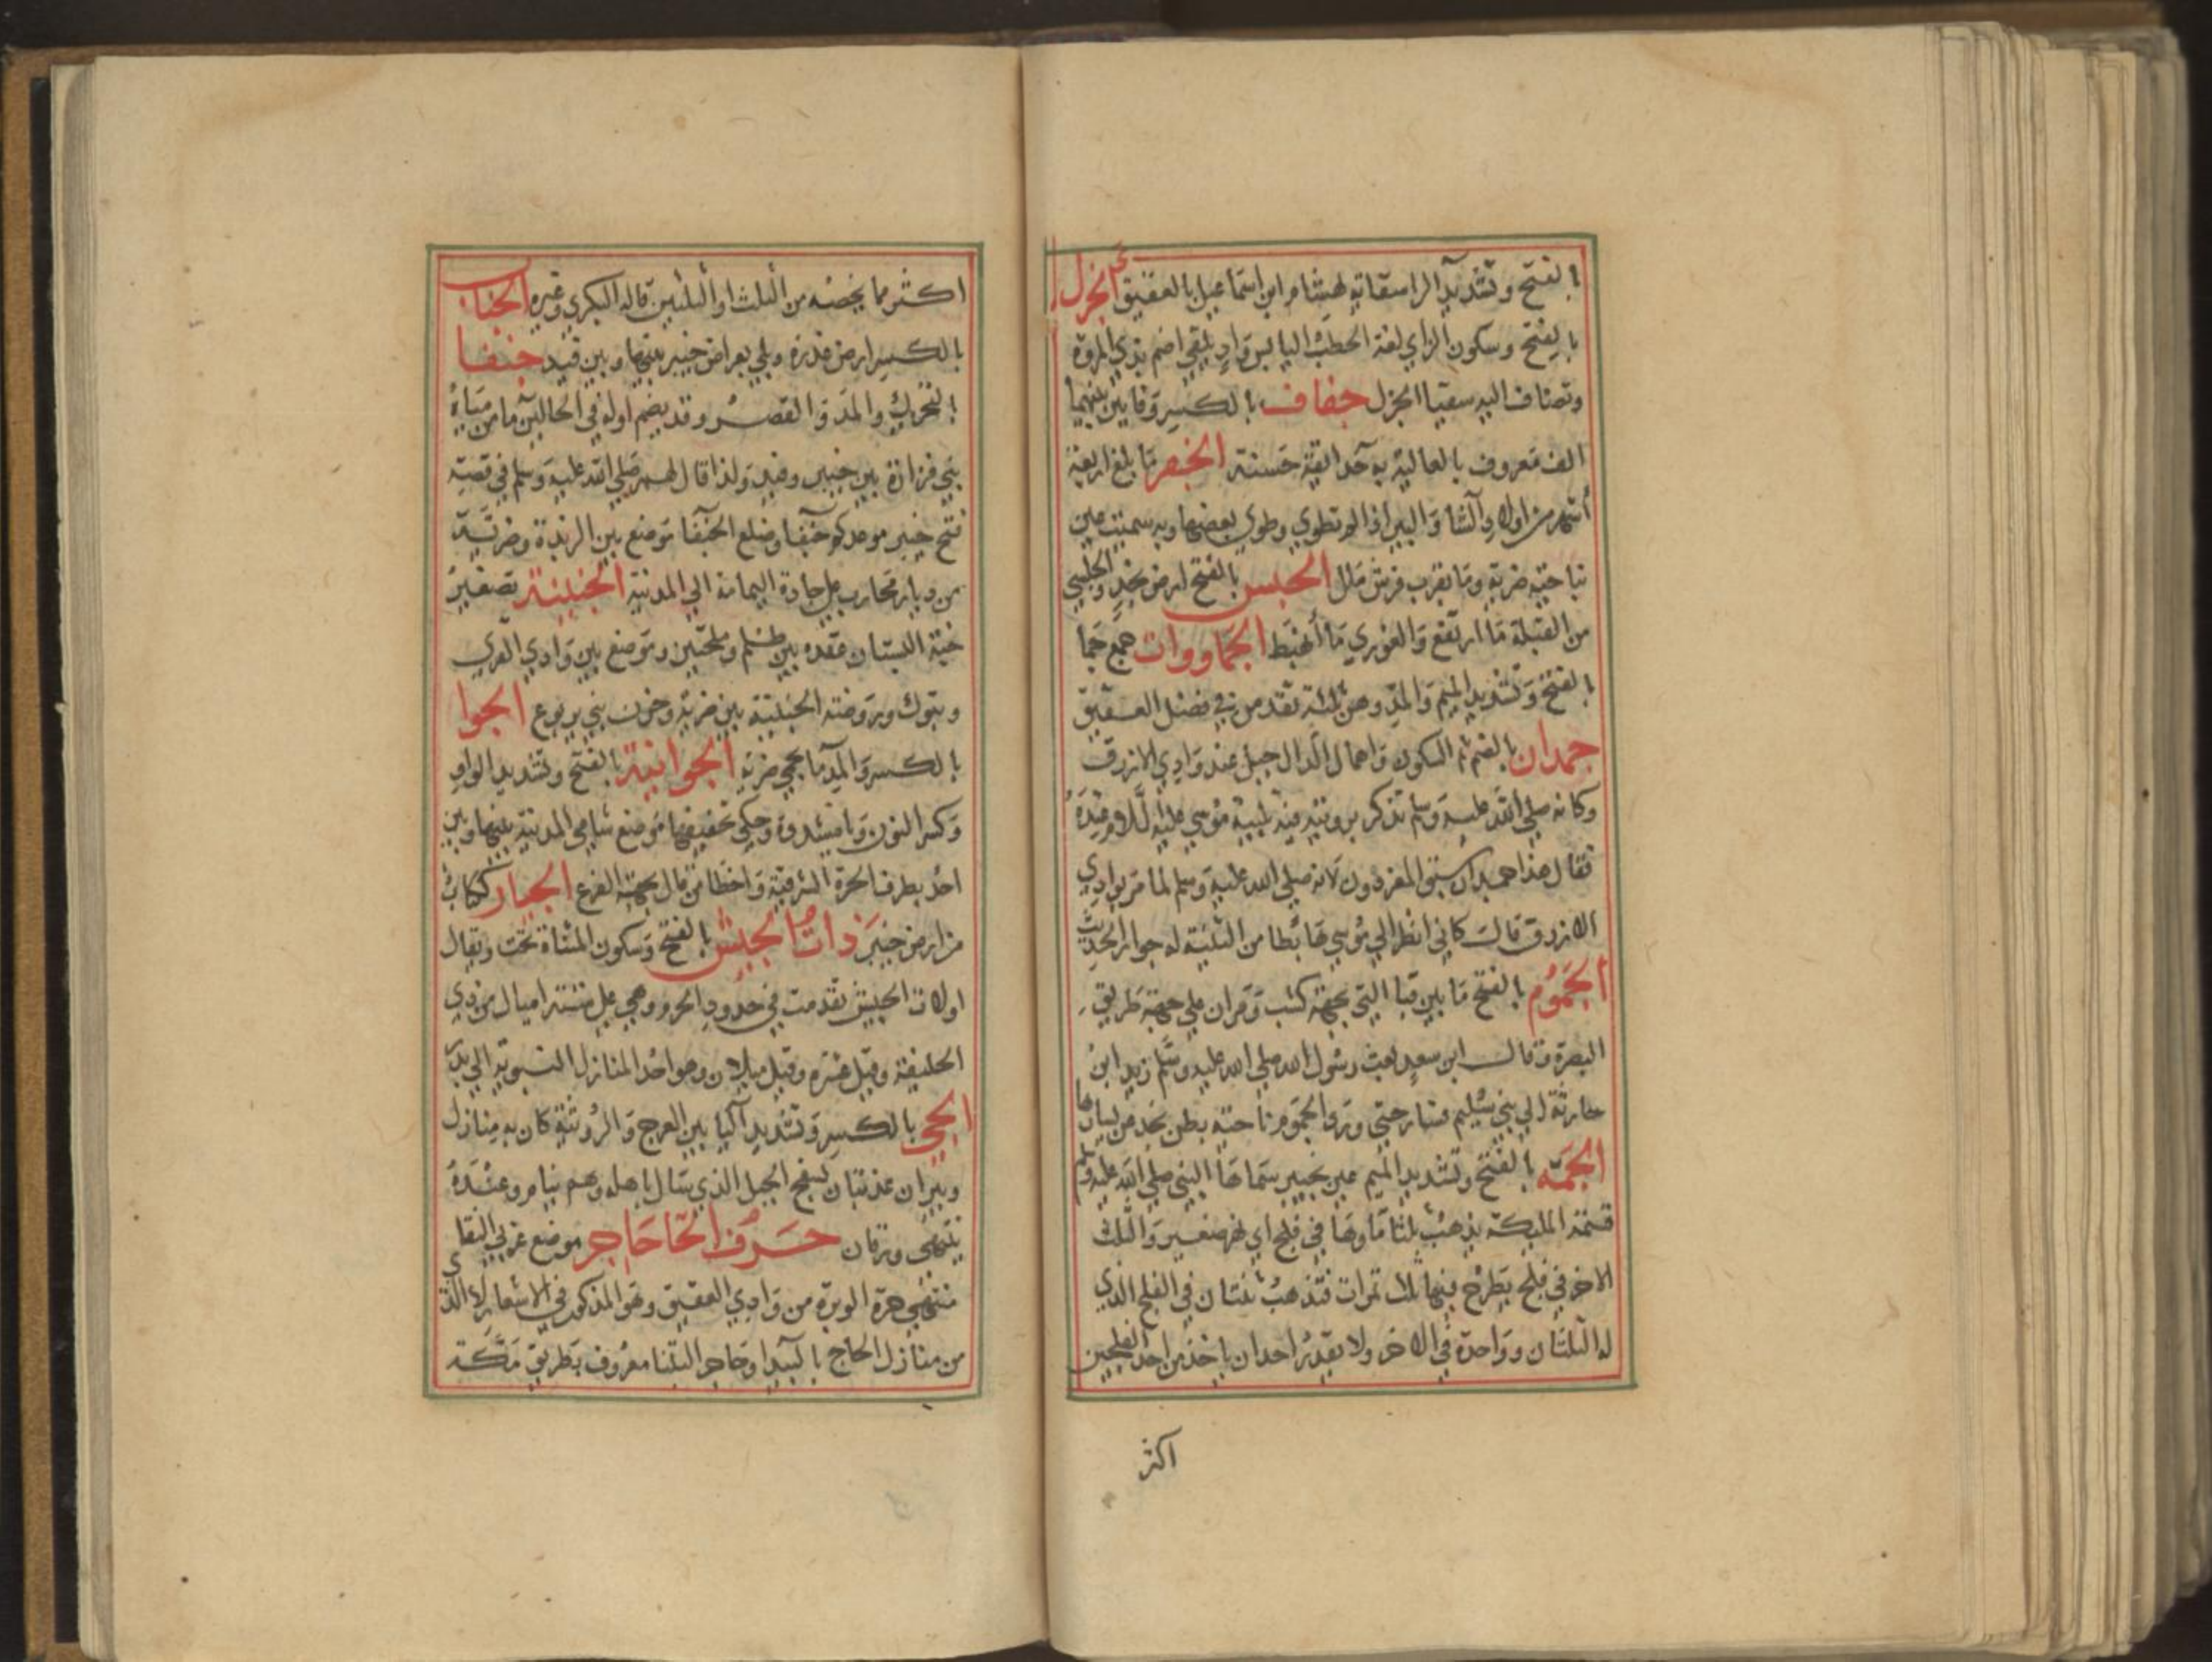 بالفتح وتشديد الرا سقاية لهشام ابن اسماعيل بالعقيق الجزل
بالفتح وسكون الزاي لغة الحطب اليابس واد يلقي اضم بذي المروة
وتضاف اليه سقيا الجزل جفاف بالكسر وفايين بينهما
الف معروف بالعالية به حدايقة حسنة الجفر ما بلغ اربعة
اشهر من اولاد الشا والبير اذا لم تطوي وطوي بعضها وبه سميت عين
بناحية ضرية وما بقرب فرش ملل الجلس بالفتح ارض نجد والجلسي
من القبلة ما ارتفع والغوري ما انهبط الجماووات جمع جما
بالفتح وتشديد الميم والمد وهن ثلثة تقدمن في فضل العقيق
جمدان بالضم ثم السكون واهمال الدال جبل عند وادي الازرق
وكانه صلى الله عليه وسلم تذكر برويته فيه تلبية موسى عليه السلام فيه
فقال هذا جمدان سبق المفردون لانه صلى الله عليه وسلم لما مر بوادي
الازرق قال كاني انظر الي موسى هابطا من الثنية له جوار الحديث
الجموم بالفتح ما بين قبا التي بجهة كشب ومران على جهة طريق
البصرة وقال ابن سعد بعث رسول الله صلى الله عليه وسلم زيد ابن
حارثة الي بني سليم فسار حتى ورد الجموم ناحية بطن نخل من يسارها
الجمة بالفتح وتشديد الميم عين بخيبر سماها النبي صلى الله عليه وسلم
قسمة المليكة يذهب ثلثا ماوها في فلج اي نهر صغير والثلث
الاخر في فلج يطرح فيها ثلاث تمرات فتذهب ثنتان في الفلج الذي
له الثلثان وواحدة في الاخر ولا يقدر احد ان ياخذ من احد الفلجين
اكثر
اكثر مما يخصه من الثلث او الثلثين قاله البكري وغيره الجناب
بالكسر ارض عذرة وبلي بعراض خيبر بينها وبين فيد جنفا
بالتحريك والمد والقصر وقد يضم اوله في الحالين ما من مياه
بني فزارة بين خيبر وفيد ولذا قال لهم صلى الله عليه وسلم في قصة
فتح خيبر موعدكم جنفا وضلع الجنفا موضع بين الربذة وضرية
من ديار محارب على جادة اليمامة الي المدينة الجنينة تصغير
جنة البستان عقدة بين ظلم وملحتين وموضع بين وادي القرى
وتبوك وروضة الجنينة بين ضرية وحزن بني يربوع الجوا
بالكسر والمد ما بحمي ضرية الجوانية بالفتح وتشديد الواو
وكسر النون ويا مشددة وحكي تخفيفها موضع شامي المدينة بينها وبين
احد بطرف الحرة الشرقية واخطا من قال بجهة الفرع الجيار ككتاب
من ارض خيبر ذات الجيش بالفتح وسكون المثناة تحت ويقال
اولات الجيش تقدمت في حدود الحرم وهي على ستة اميال من ذي
الحليفة وقيل عشرة وقيل ميلان وهو احد المنازل النبوية الي بدر
الجي بالكسر وتشديد اليا بين العرج والرويثة كان به منازل
وبيران عذبتان لسفح الجبل الذي سال باهله وهم نيام وعنده
ينتهي ورقان حرف الحا حاجر موضع غربي النقا
منتهي حرة الوبرة من وادي العقيق وهو المذكور في الاشعار لا الذي
من منازل الحاج بالبيدا وحاجر الثنا معروف بطريق مكة